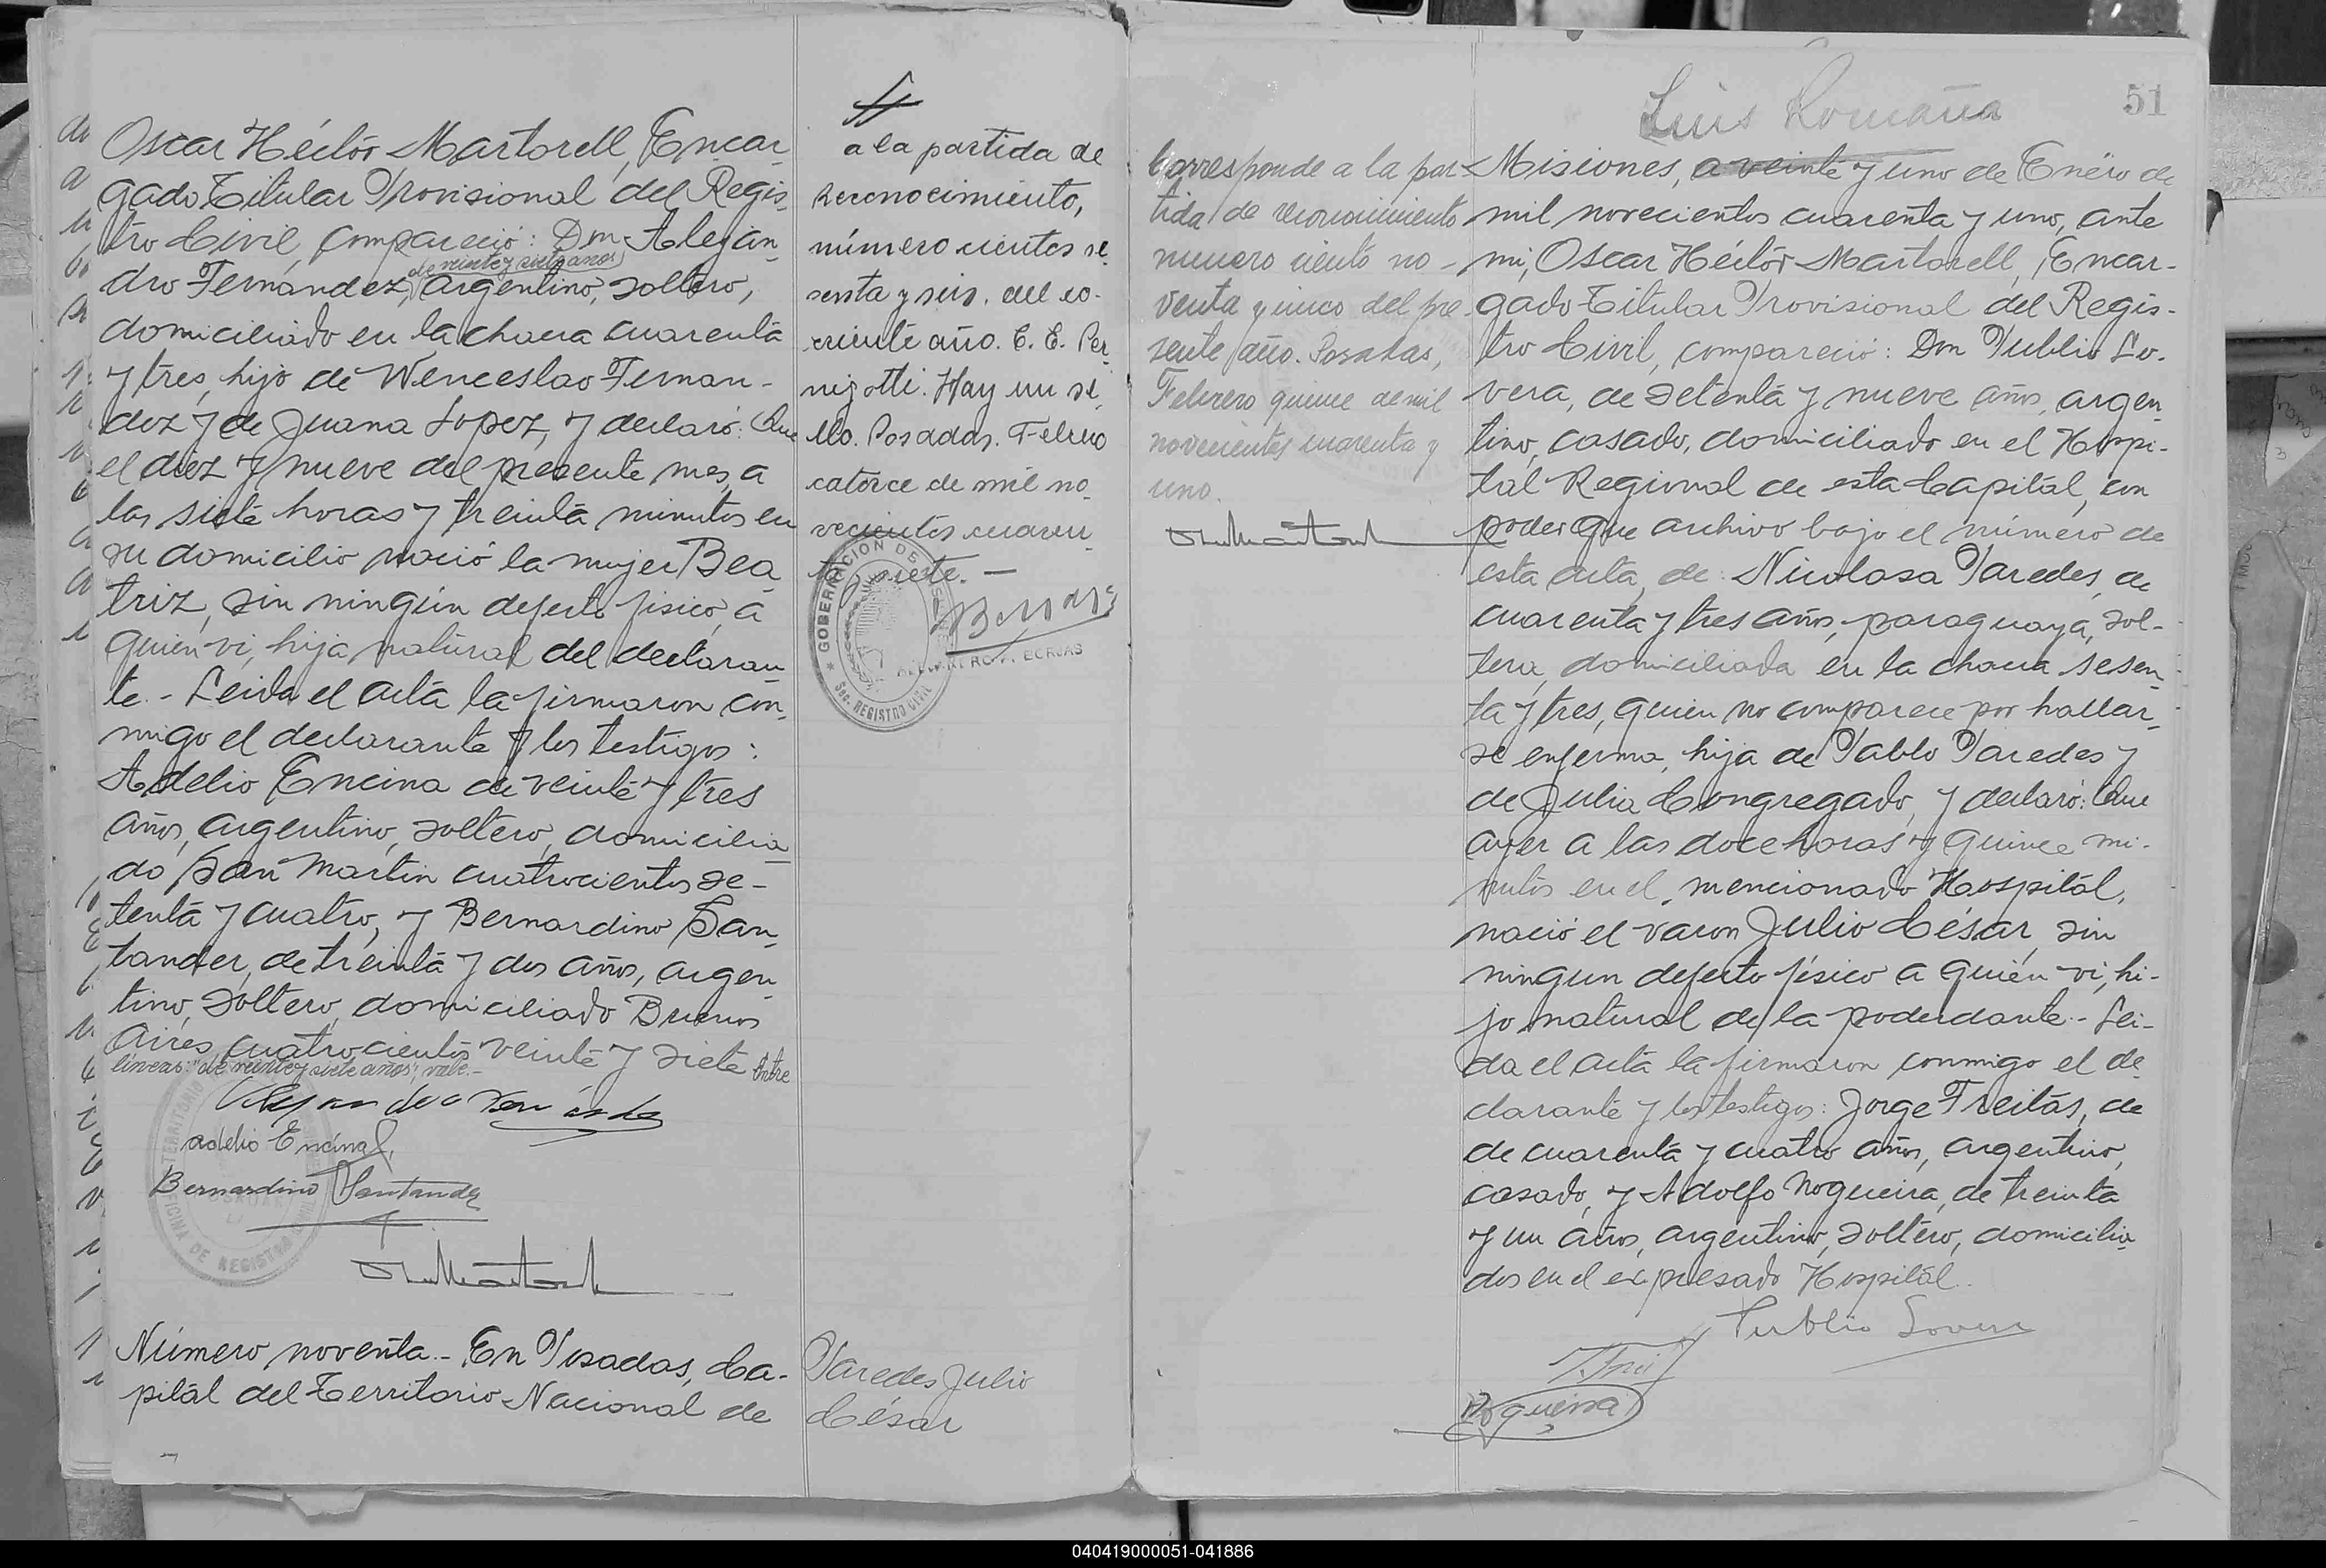 Oscar Héctor Martorell, Encar-
gado Titular Provisional del Regis-
tro Civil, compareció: Don Alejan-
de veinte y siete años
dro Fernández, argentino, soltero,
domiciliado en la chacra cuarenta
y tres, hijo de Wenceslao Fernan-
dez y de Juana Lopez, y declaró: Que
el diez y nueve del presente mes, a
las siete horas y treinta minutos en
su domicilio nació la mujer Bea
triz, sin ningún defecto fisico, a
quien vi, hija natural del declaran-
te.- Leida el acta la firmaron con-
migo el declarante y los testigos:
Adelio Encina de veinte y tres
años, argentino, soltero, domicilia-
do San Martin cuatrocientos se-
tenta y cuatro, y Bernardino San-
tander, de treinta y dos años, argen-
tino, soltero, domiciliado Buenos
Aires cuatrocientos veinte y siete Entre
lineas: "de veinte y siete años", vale.-
Adelio Encina
Bernardino Santander
Número noventa.- En Posadas, Ca-
pital del Territorio Nacional de
a la partida de
reconocimiento,
número cientos se-
senta y seis. del co-
rriente año. C. E. Per-
nigotti. Hay un se-
llo. Posadas. Febrero
catorce de mil no-
vecientos cuaren-
ta y siete.-
GOBERNACION DE
SEC. REGISTRO CIVIL
BORJAS
Paredes Julio
César
Luis Romaña
51
Corresponde a la par-
tida de reconocimiento
numero ciento no-
venta y cinco del pre-
sente año. Posadas,
Febrero quince de mil
novecientos cuarenta y
uno.
Misiones, a veinte y uno de Enero de
mil novecientos cuarenta y uno, ante
mi, Oscar Héctor Martorell, Encar-
gado Titular Provisional del Regis-
tro Civil, compareció: Don Publio Lo-
vera, de setenta y nueve años, argen-
tino, casado, domiciliado en el Hospi-
tal Regional de esta Capital, con
poder que archivo bajo el número de
esta acta, de: Nicolasa Paredes, de
cuarenta y tres años, paraguaya, sol-
tera, domiciliada en la chacra sesen-
ta y tres, quien no comparece por hallar-
se enferma, hija de Pablo Paredes y
de Julia Congregado, y declaró: Que
ayer a las doce horas y quince mi-
nutos en el mencionado Hospital,
nació el varon Julio César, sin
ningun defecto físico a quién vi, hi-
jo natural de la poderdante.- Lei-
da el acta la firmaron conmigo el de
clarante y los testigos: Jorge Freitas, de
de cuarenta y cuatro años, argentino,
casado, y Adolfo Nogueira, de treinta
y un años, argentino, soltero, domicilia-
dos en el expresado Hospital.
Publio Lovera
Nogueira
040419000051-041886